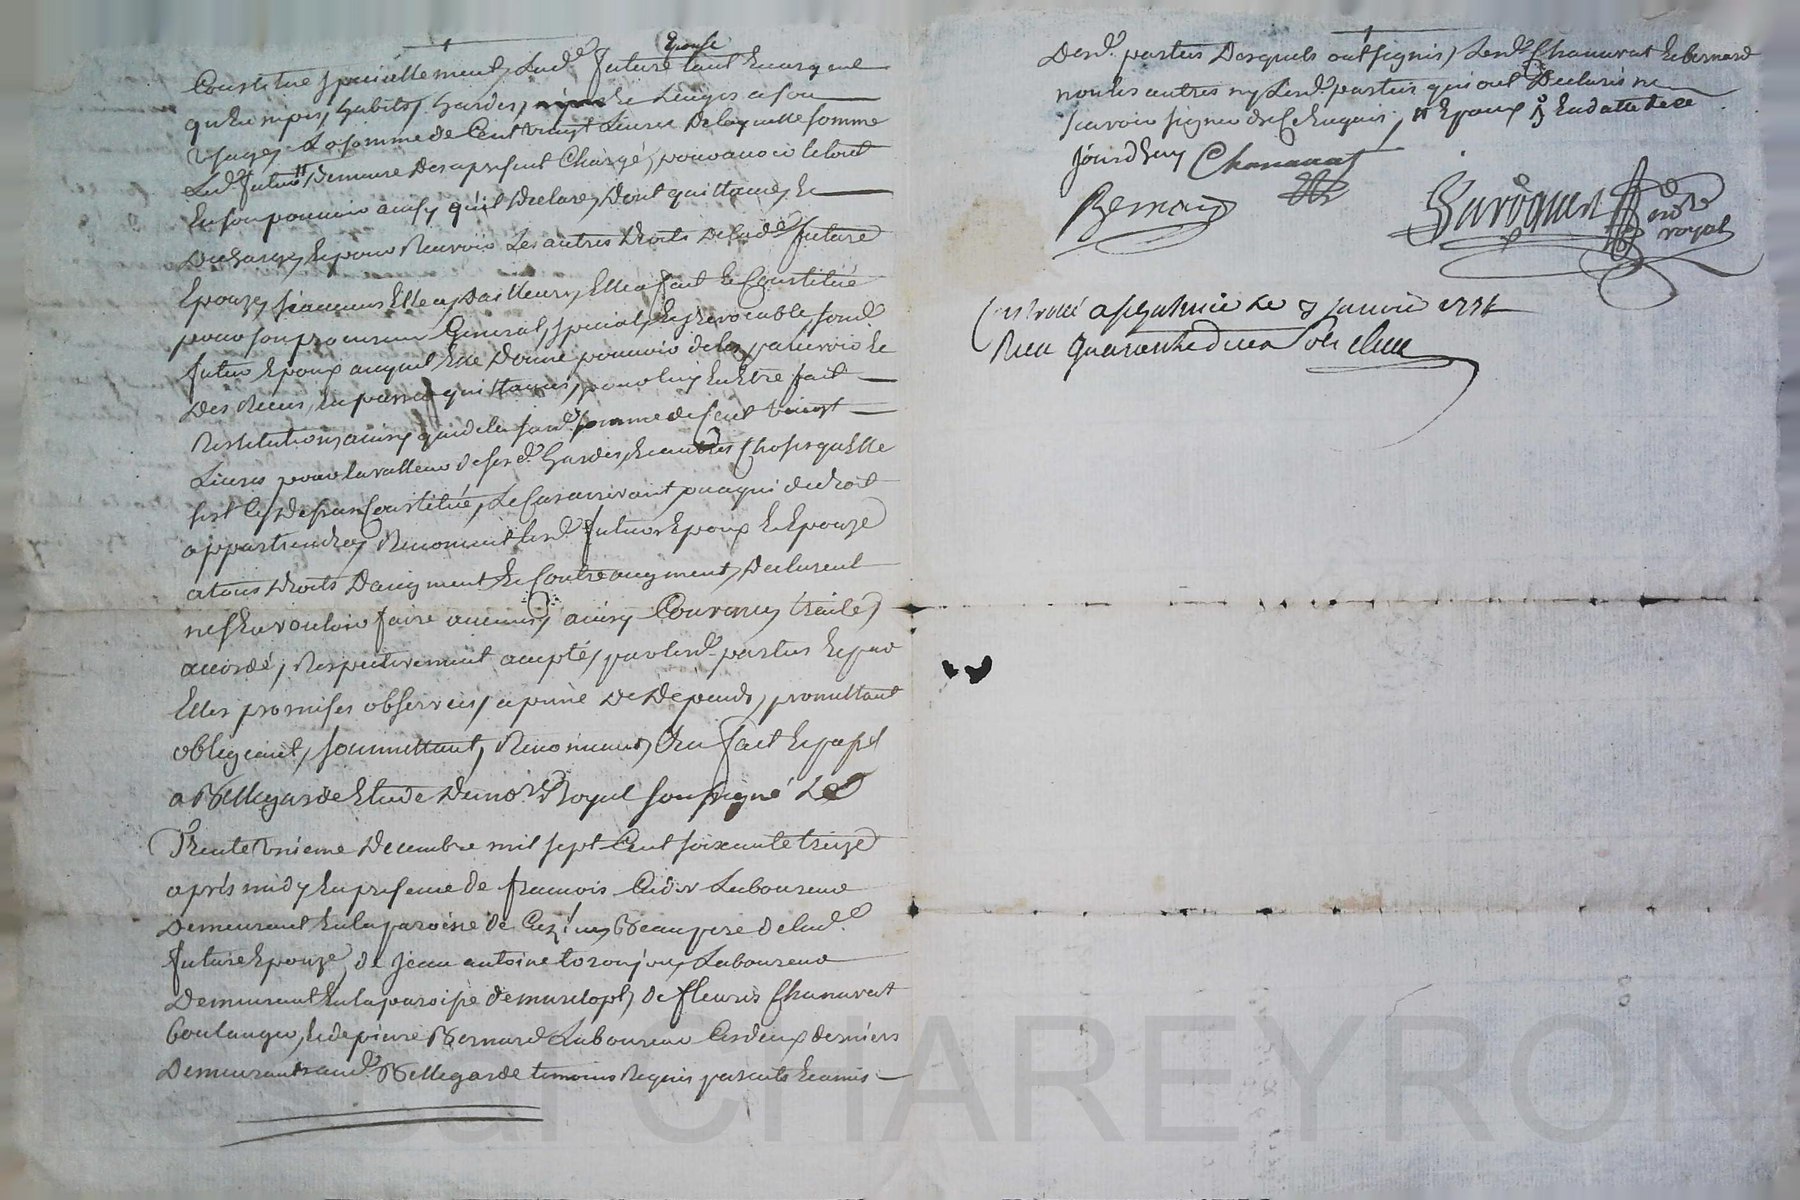 Epouse
Constitue specialement Lad.e future tant en argent
qu'en nipes, habits, hardes, et Linges a son
usage, La somme de Cent vingt Livres De laquelle somme
Led. futur demeure Des a present Chargé, pour avoir le tout
En son pouvoir ainsy qu'il Declare, Dont quittance, Et
Decharge, Et pour Recevoir Les autres Droits De lad.e future
Epouze, si aucuns Elle a, D'ailleurs, Elle a fait Et Constitué
pour son procureur General, special, Et irrevocable, sond.
futur Epoux auquel Elle Donne pouvoir de les percevoir Et
Des Recus, En passer quittances, pour luy En Etre fait
Restitution, ainsy que de la susd. somme de Cent vingt
Livres pour la valleur de sesd. hardes, Et autres Choses qu'Elle
s'est Cy dessus Constitué, Le Cas arrivant, ou a qui de droit
appartiendra, Renoncent lesd. futurs Epoux Et Epouze
a tous Droits D'augment, Et Contre augment, Declarent
n'En vouloir faire aucuns, ainsy Convenu, traité,
accordé, Respectivement accepté, par lesd. parties Et par
Elles promises observer, a peine De Depends, promettant
obligeant, soumettant, Renonceant, &c. fait Et passé
a Bellegarde Etude Du not.re Royal soussigné Le
Trente Unieme Decembre mil sept Cent soixante treize
après midy En presence de francois Laboureur
Demeurant En la paroisse de Beaupere de lad.e
future Epouze, de Jean antoine Laboureur
Demeurant En la paroisse de, de fleuris Chanavat
boulanger, Et de pierre Bernard Laboureur Ces deux derniers
Demeurants aud. Bellegarde temoins Requis parents Et amis
Desd. parties Desquels ont signés, Lesd. Chanavat Et bernard
non les autres ny Lesd. parties qui ont Declarés ne
scavoir signer de Ce Enquis, # Epoux En datte de ce
jourd'huy Chanavat
Bernard
not.re
royal
Controlé a le 8 janvier 1774
Recu quarante deux sols
Pascal CHAREYRON